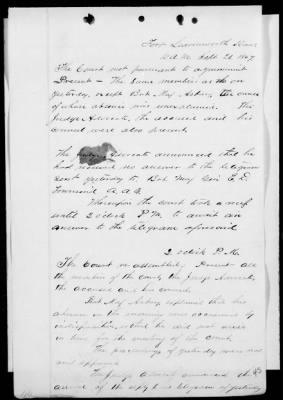 Fort Leavenworth Kans
Sept 28 1867
The Court met pursuant to adjournment
Present – The same members as on
yesterday, except Bvt Maj Asbury, the cause
of whose absence was unexplained. The
Judge Advocate, the accused and his
counsel were also present.
The Advocate announced that he
had received no answer to the telegram
sent yesterday to Bvt Maj Gen E. D.
Townsend A. A. G.
Whereupon the court took a recess
until 2 o'clock P.M. to await an
answer to the telegram aforesaid
2 o'clock P.M.
The Court re-assembled, Present all
the members of the court, the Judge Advocate,
the accused and his counsel.
Bvt Maj Asbury explained that his
absence in the morning was occasioned by
indisposition, which he did not
in time for the meeting of the court.
The proceedings of yesterday were read
and approved.
The Judge Advocate announced the
of the reply to his telegram of yesterday